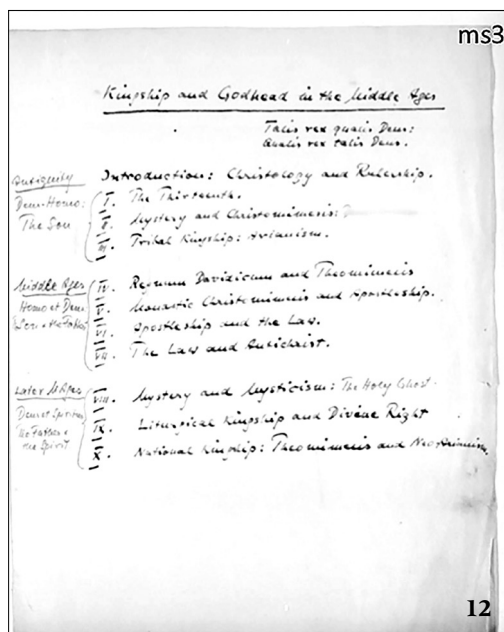 ms3
Kingship and Godhead in the Middle Ages
Talis rex qualis Deus:
Qualis rex talis Deus.
Introduction: Christology and Rulership.
Antiquity
Deus-Homo:
The Son
I. The Thirteenth.
II. Mystery and Christomimesis:
III. Tribal Kingship: Arianism.
Middle Ages
Homo et Deus
Son + the Father
IV. Regnum Davidicum and Theomimesis
V. Monastic Christomimesis and Apostleship.
VI. Apostleship and the Law.
VII. The Law and Antichrist.
Later M. Ages
Deus et Spiritus
The Father +
the Spirit
VIII. Mystery and Mysticism: The Holy Ghost.
IX. Liturgical Kingship and Divine Right
X. National Kingship: Theomimesis and
12